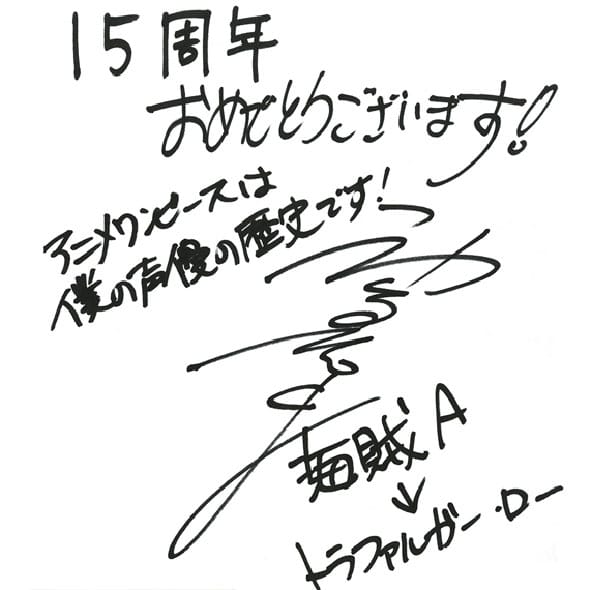 15周年
おめでとうございます!
アニメワンピースは
僕の声優の歴史です!
海賊A
↓
トラファルガー・ロー